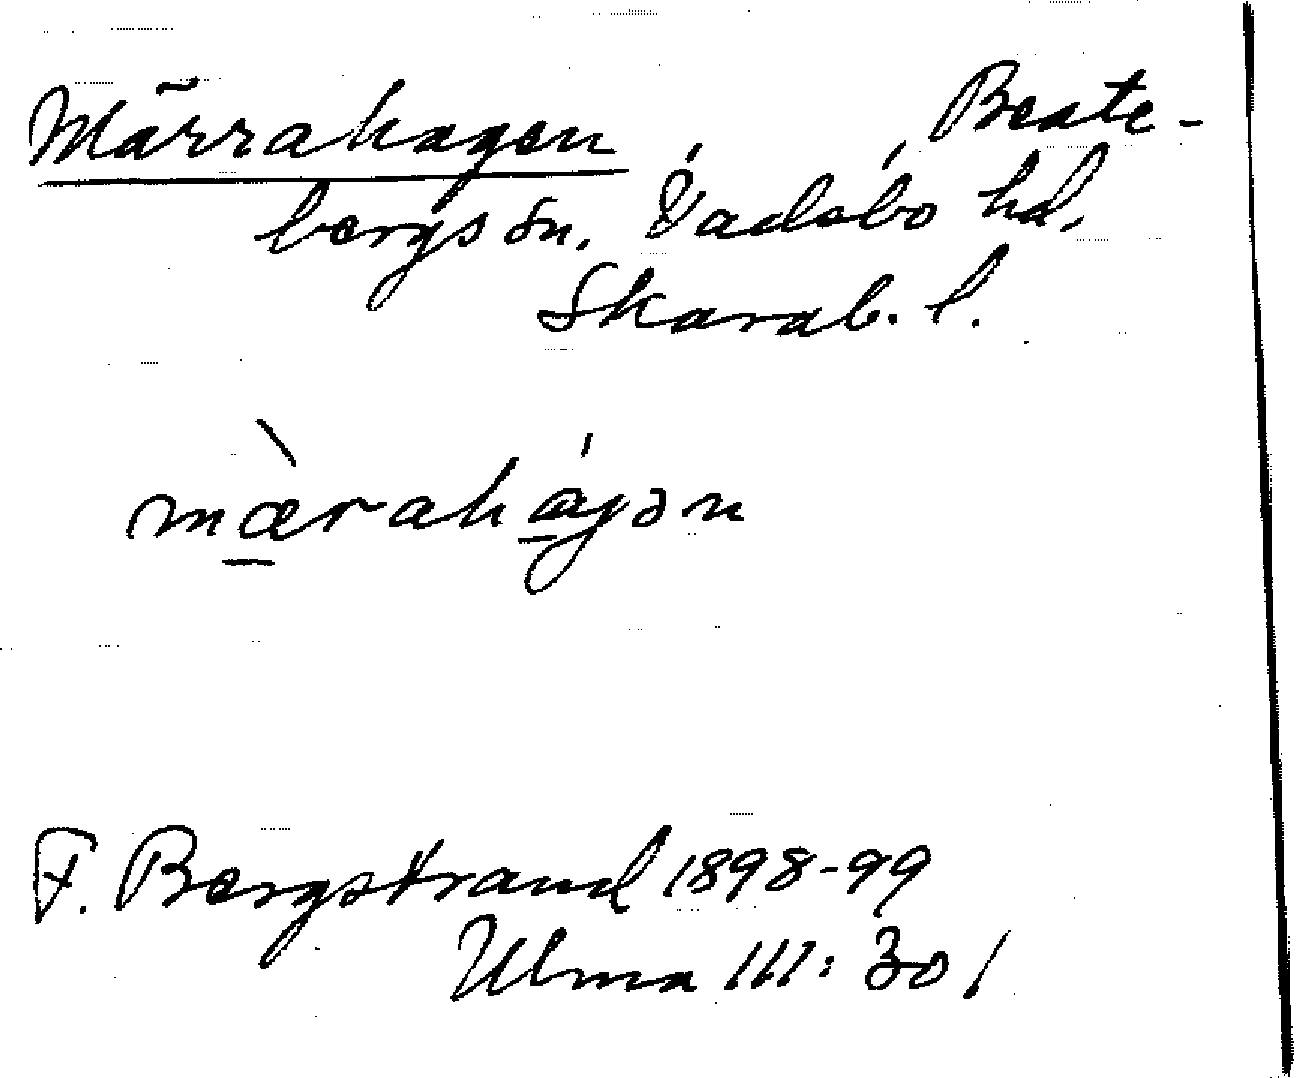 Märrahagen, Beate-
bergs sn. Vadsbo hd.
Skarab. l.
mæ̀rahágən
F. Bergstrand 1898-99
Ulma 111:301